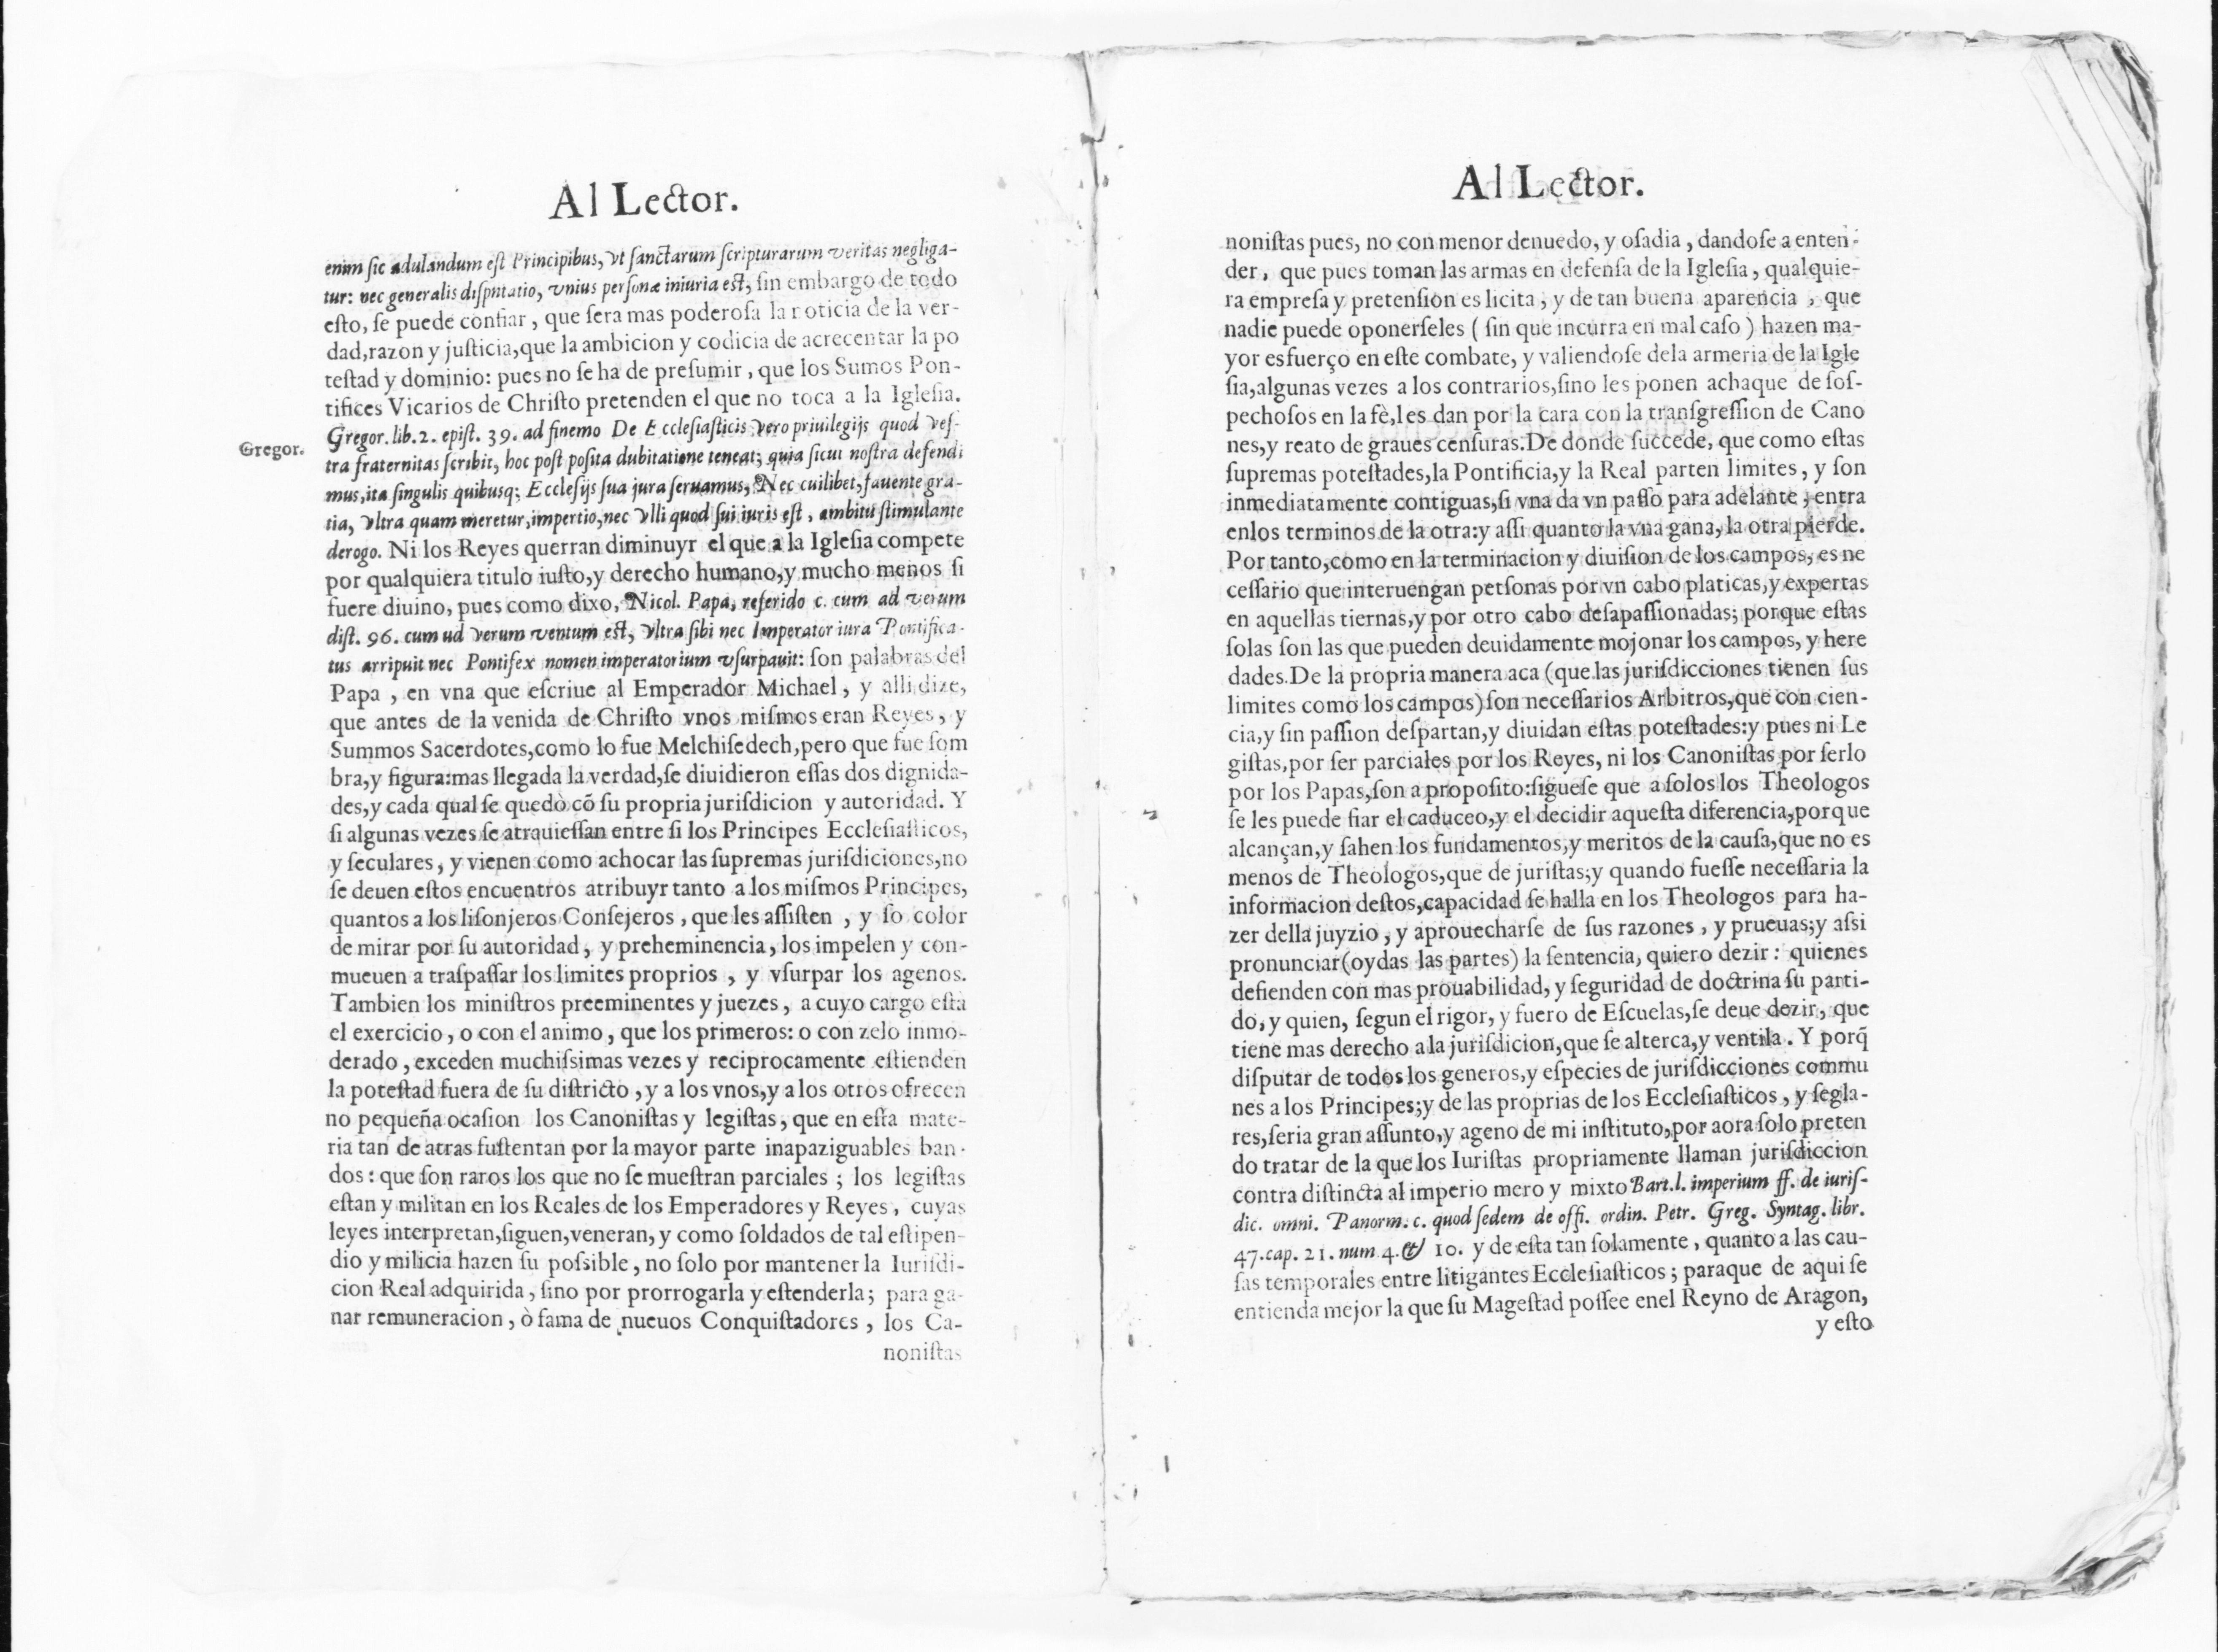 Al Lector.
enim ſic adulandum eſt Principibus, vt ſanctarum ſcripturarum veritas negliga-
tur: nec generalis diſputatio, vnius perſonæ iniuria eſt, ſin embargo de todo
eſto, ſe puede confiar, que ſera mas poderoſa la noticia de la ver-
dad,razon y juſticia,que la ambicion y codicia de acrecentar la po
teſtad y dominio: pues no ſe ha de preſumir, que los Sumos Pon-
tifices Vicarios de Chriſto pretenden el que no toca a la Igleſia.
Gregor.
Gregor. lib.2. epiſt. 39. ad finemo De Eccleſiaſticis vero priuilegijs quod veſ-
tra fraternitas ſcribit, hoc poſt poſita dubitatione teneat; quia ſicut noſtra defendi
mus,ita ſingulis quibusq; Eccleſijs ſua jura ſeruamus, Nec cuilibet, fauente gra-
tia, vltra quam meretur,impertio,nec vlli quod ſui iuris eſt, ambitu ſtimulante
derogo. Ni los Reyes querran diminuyr el que a la Igleſia compete
por qualquiera titulo iuſto,y derecho humano,y mucho menos ſi
fuere diuino, pues como dixo, Nicol. Papa, referido c. cum ad verum
diſt. 96. cum ud verum ventum eſt, vltra ſibi nec Imperator iura Pontifica-
tus arripuit nec Pontifex nomen imperatorium vſurpauit: ſon palabras del
Papa, en vna que eſcriue al Emperador Michael, y alli dize,
que antes de la venida de Chriſto vnos miſmos eran Reyes, y
Summos Sacerdotes,como lo fue Melchiſedech,pero que fue ſom
bra,y figura:mas llegada la verdad,ſe diuidieron eſſas dos dignida-
des,y cada qual ſe quedò cõ ſu propria juriſdicion y autoridad. Y
ſi algunas vezes ſe atrauieſſan entre ſi los Principes Eccleſiaſticos,
y ſeculares, y vienen como achocar las ſupremas juriſdiciones,no
ſe deuen eſtos encuentros atribuyr tanto a los miſmos Principes,
quantos a los liſonjeros Conſejeros, que les aſſiſten, y ſo color
de mirar por ſu autoridad, y preheminencia, los impelen y con-
mueuen a traſpaſſar los limites proprios, y vſurpar los agenos.
Tambien los miniſtros preeminentes y juezes, a cuyo cargo eſta
el exercicio, o con el animo, que los primeros: o con zelo inmo-
derado, exceden muchiſsimas vezes y reciprocamente eſtienden
la poteſtad fuera de ſu diſtricto, y a los vnos,y a los otros ofrecen
no pequeña ocaſion los Canoniſtas y legiſtas, que en eſta mate-
ria tan de atras ſuſtentan por la mayor parte inapaziguables ban-
dos: que ſon raros los que no ſe mueſtran parciales; los legiſtas
eſtan y militan en los Reales de los Emperadores y Reyes, cuyas
leyes interpretan,ſiguen,veneran, y como ſoldados de tal eſtipen-
dio y milicia hazen ſu poſsible, no ſolo por mantener la Iuriſdi-
cion Real adquirida, ſino por prorrogarla y eſtenderla; para ga-
nar remuneracion, ò fama de nueuos Conquiſtadores, los Ca-
noniſtas
Al Lector.
noniſtas pues, no con menor denuedo, y oſadia, dandoſe a enten-
der, que pues toman las armas en defenſa de la Igleſia, qualquie-
ra empreſa y pretenſion es licita, y de tan buena aparencia, que
nadie puede oponerſeles (ſin que incurra en mal caſo) hazen ma-
yor esfuerço en eſte combate, y valiendoſe dela armeria de la Igle
ſia,algunas vezes a los contrarios,ſino les ponen achaque de ſoſ-
pechoſos en la fè,les dan por la cara con la tranſgreſſion de Cano
nes,y reato de graues cenſuras.De donde ſuccede, que como eſtas
ſupremas poteſtades,la Pontificia,y la Real parten limites, y ſon
inmediatamente contiguas,ſi vna da vn paſſo para adelante, entra
enlos terminos de la otra:y aſſi quanto la vna gana, la otra pierde.
Por tanto,como en la terminacion y diuiſion de los campos, es ne
ceſſario que interuengan perſonas por vn cabo platicas,y expertas
en aquellas tiernas,y por otro cabo deſapaſſionadas; porque eſtas
ſolas ſon las que pueden deuidamente mojonar los campos, y here
dades.De la propria manera aca (que las juriſdicciones tienen ſus
limites como los campos) ſon neceſſarios Arbitros,que con cien-
cia,y ſin paſſion deſpartan,y diuidan eſtas poteſtades:y pues ni Le
giſtas,por ſer parciales por los Reyes, ni los Canoniſtas por ſerlo
por los Papas,ſon a propoſito:ſigueſe que a ſolos los Theologos
ſe les puede fiar el caduceo,y el decidir aqueſta diferencia,porque
alcançan,y ſahen los fundamentos,y meritos de la cauſa,que no es
menos de Theologos,que de juriſtas;y quando fueſſe neceſſaria la
informacion deſtos,capacidad ſe halla en los Theologos para ha-
zer della juyzio, y aprouecharſe de ſus razones, y prueuas;y aſsi
pronunciar(oydas las partes) la ſentencia, quiero dezir: quienes
defienden con mas prouabilidad, y ſeguridad de doctrina ſu parti-
do, y quien, ſegun el rigor, y fuero de Eſcuelas,ſe deue dezir, que
tiene mas derecho a la juriſdicion,que ſe alterca,y ventila. Y porq̃
diſputar de todos los generos,y eſpecies de juriſdicciones commu
nes a los Principes;y de las proprias de los Eccleſiaſticos, y ſegla-
res,ſeria gran aſſunto,y ageno de mi inſtituto,por aora ſolo preten
do tratar de la que los Iuriſtas propriamente llaman juriſdiccion
contra diſtincta al imperio mero y mixto Bart.l. imperium ff. de iuriſ-
dic. omni. Panorm. c. quod ſedem de offi. ordin. Petr. Greg. Syntag. libr.
47.cap. 21. num 4. & 10. y de eſta tan ſolamente, quanto a las cau-
ſas temporales entre litigantes Eccleſiaſticos; paraque de aqui ſe
entienda mejor la que ſu Mageſtad poſſee enel Reyno de Aragon,
y eſto